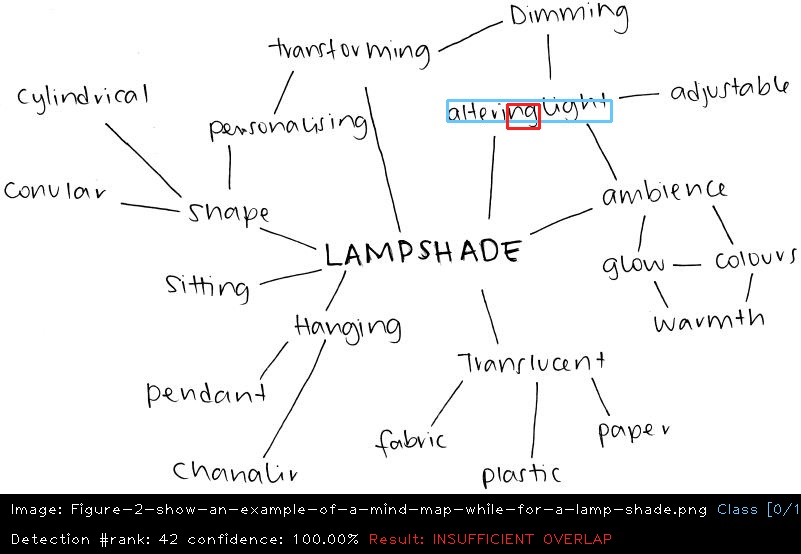 Dimming
transforming
Cylindrical
altering light
adjustable
personalising
Conular
shape
ambience
LAMPSHADE
glow
colours
Sitting
Hanging
warmth
Translucent
pendant
fabric
paper
chanalir
plastic
Image: Figure-2-show-an-example-of-a-mind-map-while-for-a-lamp-shade.png Class [0/1
Detection #rank: 42 confidence: 100.00% Result: INSUFFICIENT OVERLAP